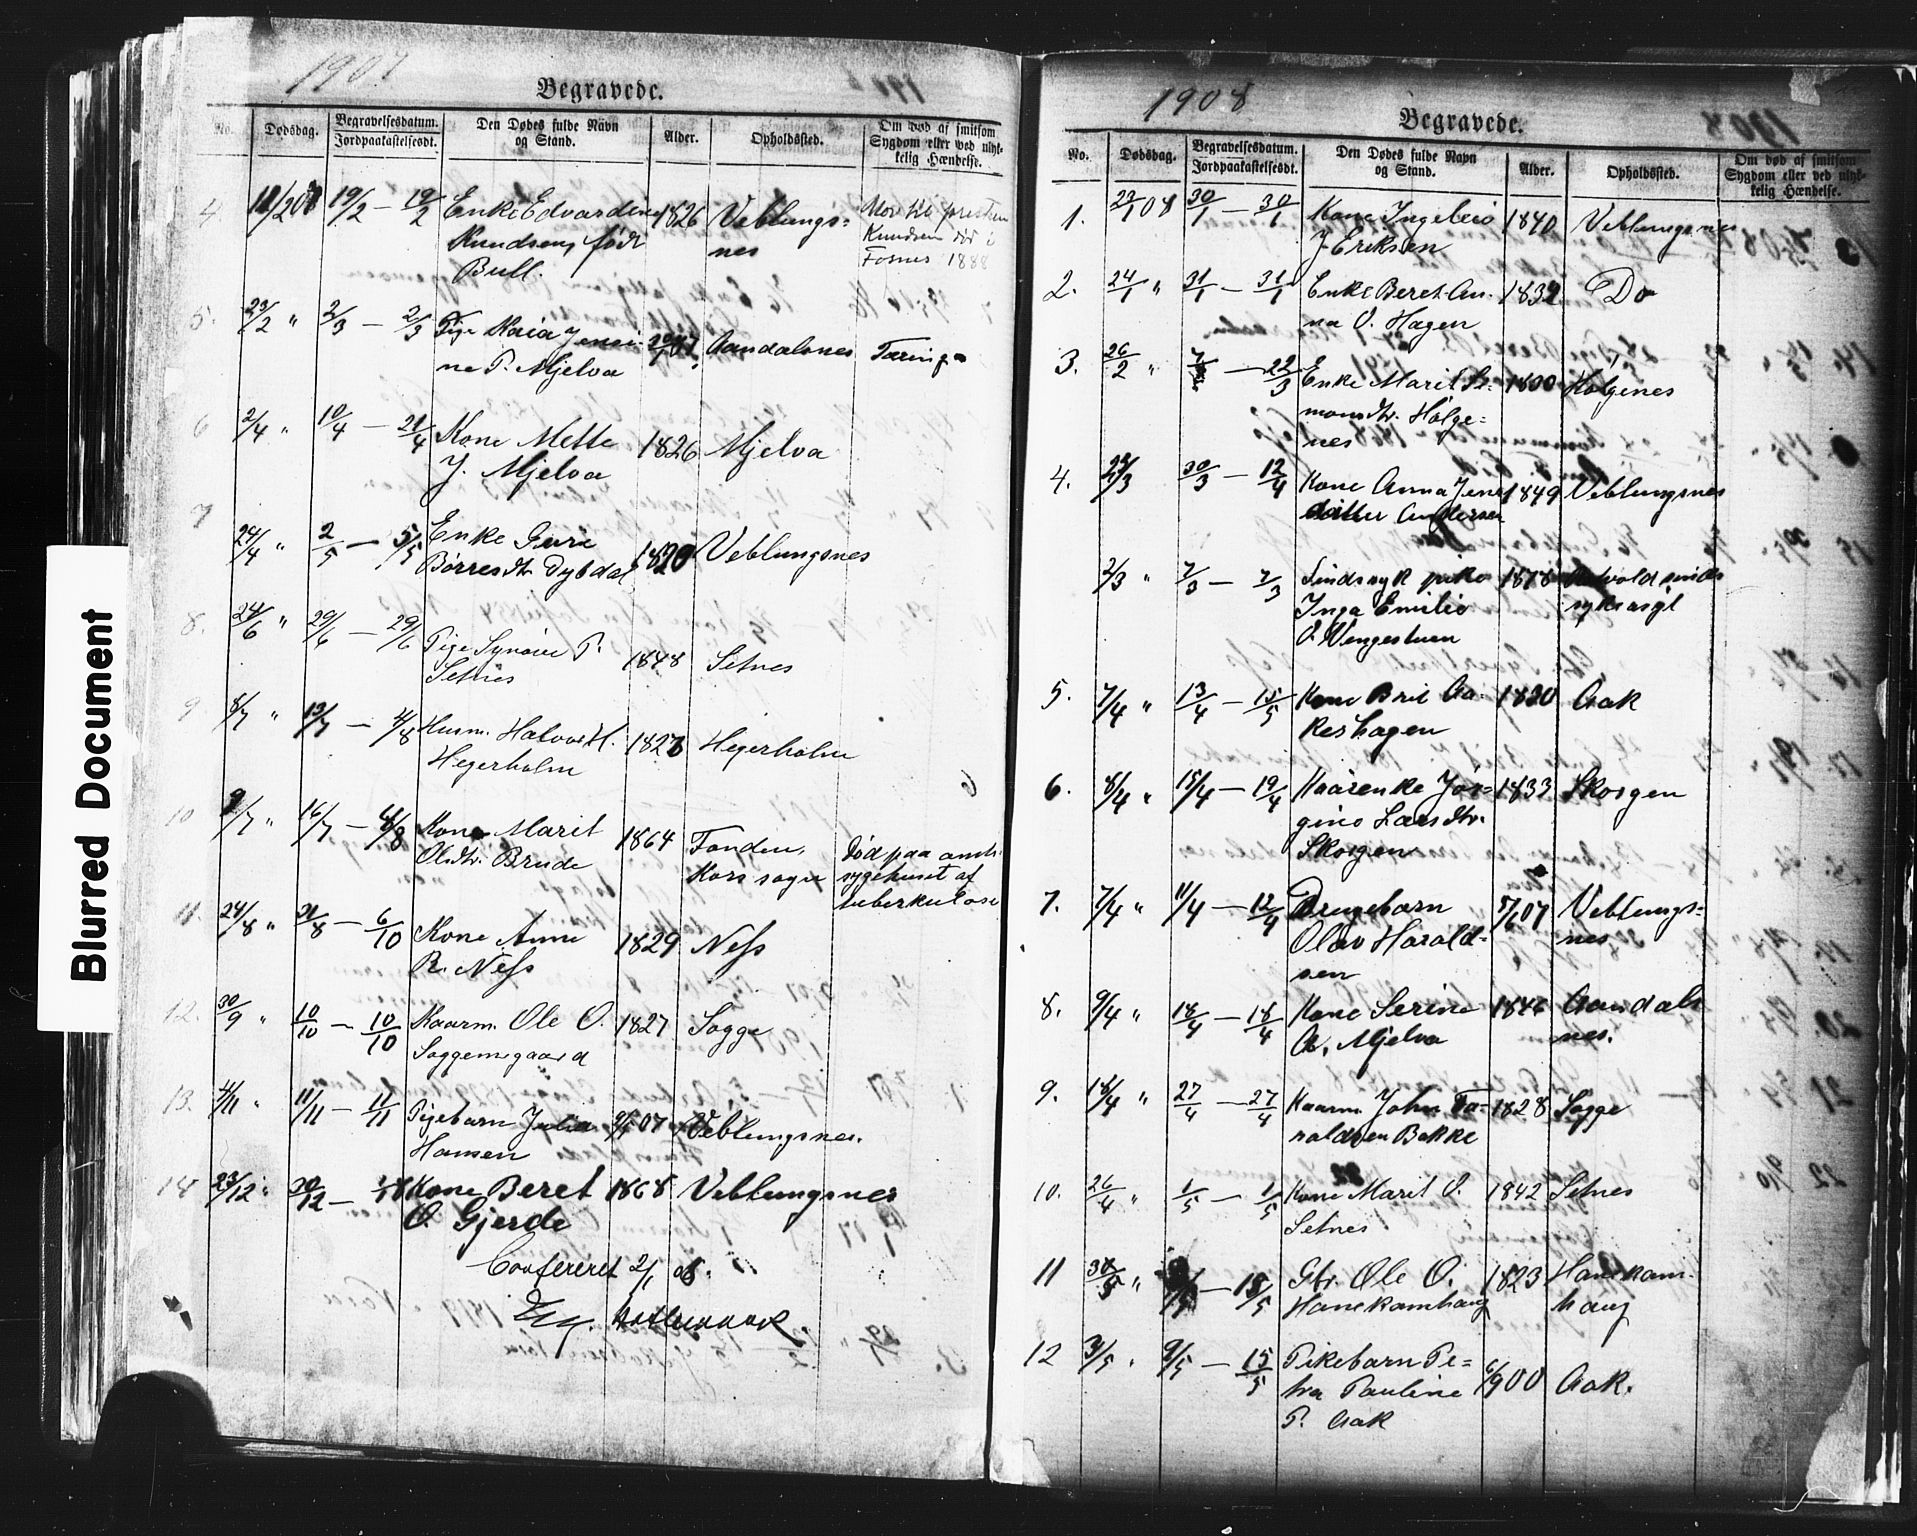 1907
Begravede.
No.
Dødsdag.
Begravelsesdatum.
Jordpaakastelsesdt.
Den Dødes fulde Navn
og Stand.
Alder.
Opholdssted.
Om død af smitsom
Sygdom eller ved ulyk-
kelig Hændelse.
4 19/2 – 19/2 Enke Edvardine 1826 Veblungs-
Knudsen, født nes
Bull.
Knudsen død i
Fosnes 1888
5. 23/2 " 2/3 – 2/3 Pige Maria Jensi- Aandalsnes Tæring
ne P. Mjelva
6 2/4 " 10/4 – 21/4 Kone Mette 1826 Mjelva
J. Mjelva
7 24/4 " 2/5 – 5/5 Enke Guri 1820 Veblungsnes
Børresdtr. Dybdal
8. 24/6 " 29/6 – 29/6 Pige Synøve P. 1848 Setnes
Setnes
9 8/7 " 13/7 – 4/8 Husm. Halvor H. 1823 Hegerholm
Hegerholm
10 9/7 " 16/7 – 4/8 Kone Marit 1864 Fonden, Død paa amts-
Olsdtr. Brude Kors sogn sygehuset af
tuberkulose
11. 24/8 " 31/8 – 6/10 Kone Anne 1829 Ness
R. Ness
12. 30/9 " 10/10 – 10/10 Kaarm. Ole O. 1827 Sogge
Soggemsgaard
13. 4/11 " 11/11 – 11/11 Pigebarn Julia 07 Veblungsnes.
Hansen
14 23/12 " 30/12 – Kone Beret 1868 Veblungsnes
O. Gjerde
Confereret 2/1 08.
1908
Begravede.
No.
Dødsdag.
Begravelsesdatum.
Jordpaakastelsesdt.
Den Dødes fulde Navn
og Stand.
Alder.
Opholdssted.
Om død af smitsom
Sygdom eller ved ulyk-
kelig Hændelse.
1. 22/1 08 30/1 – 30/1 Kone Ingebrio 1840 Veblungsnes
J. Eriksen
2. 24/1 " 31/1 – 31/1 Enke Beret An- 1832 Do
na O. Hagen
3. 26/2 " – 22/3 Enke Marit Si- 1800 Holgenes
monsdtr. Holge-
nes
4. 30/3 – 12/4 Kone Anna Jens 1849 Veblungsnes
datter Andersen
2/3 " 7/3 – 7/3 Sindssyk pike 1878 sinds
Inga Emilie sykeasyl
O. Wengestuen
5. 7/4 " 13/4 – 15/5 Kone Brit Aa- 1820 Aak
keshagen
6. 8/4 " 15/4 – 19/4 Kaarenke Jør- 1833 Skorgen
gine Larsdtr.
Skorgen
7. 7/4 " 11/4 – 12/4 Drengebarn 07 Veblungs-
Olav Harald- nes
sen
8. 9/4 " 18/4 – 18/4 Kone Serine 1846 Aandals
A. Mjelva nes.
9. 18/4 " 27/4 – 27/4 Kaarm. John Ta- 1828 Sogge
raldsen Bakke
10. 26/4 " 1/5 – 1/5 Kone Marit O. 1842 Setnes
Setnes
11 " – 15/5 Gbr. Ole O. 1823 Hanekam-
Hanekamhaug haug
12 3/5 " 9/5 – 15/5 Pikebarn Pe- 6/9 00 Aak.
tra Pauline
P. Aak
Blurred Document